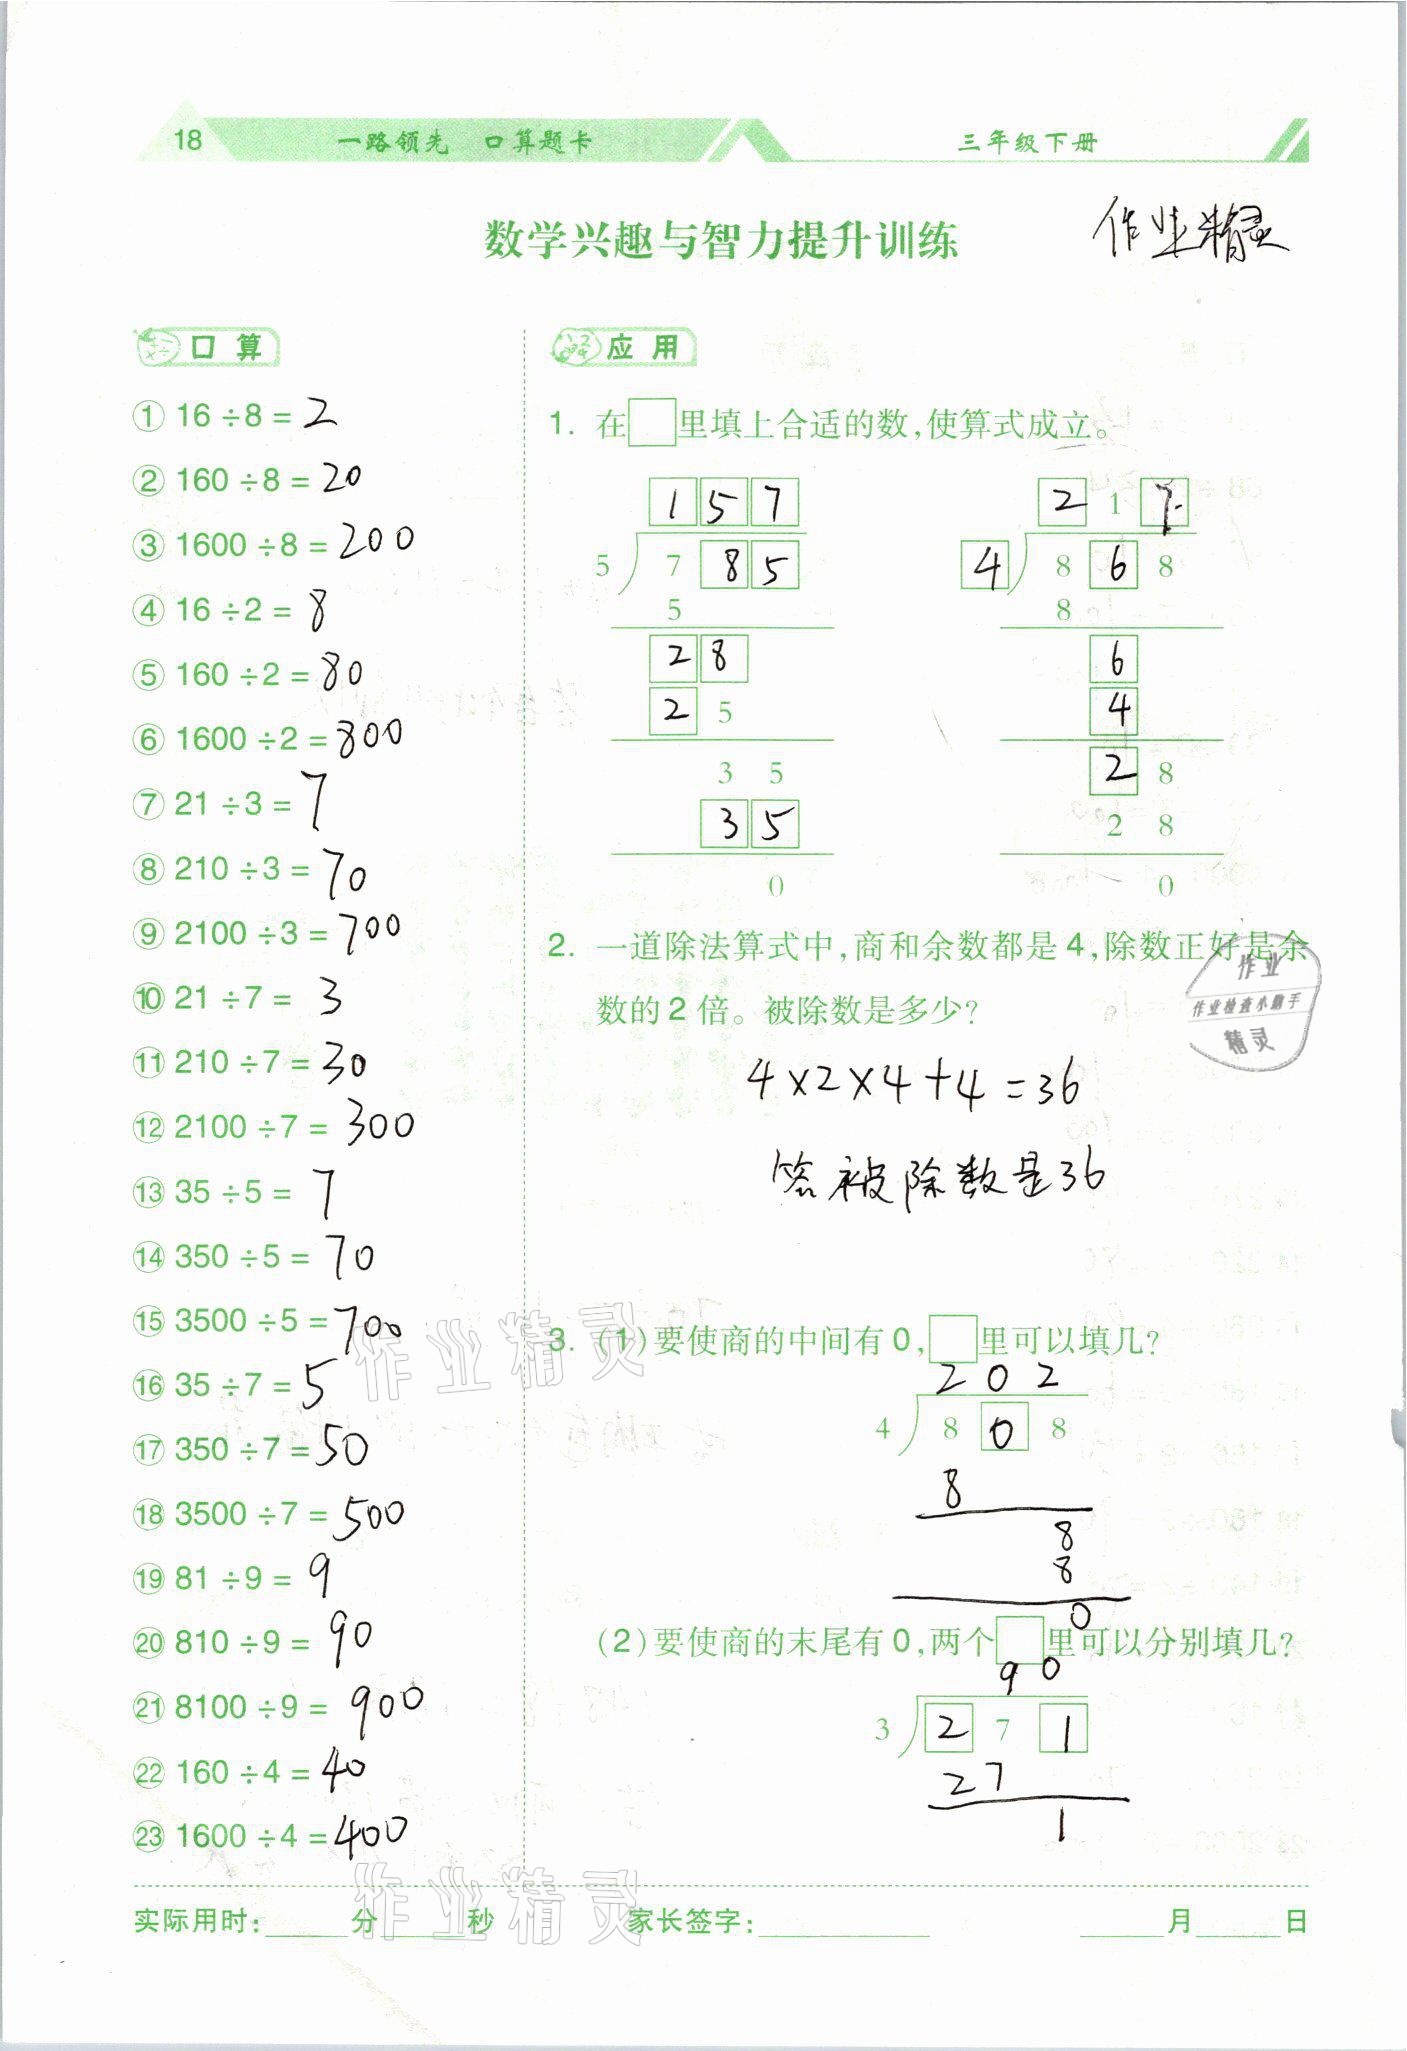 18 一路领先 口算题卡 三年级下册
数学兴趣与智力提升训练
作业精灵
口算
① 16÷8=2
② 160÷8=20
③ 1600÷8=200
④ 16÷2=8
⑤ 160÷2=80
⑥ 1600÷2=800
⑦ 21÷3=7
⑧ 210÷3=70
⑨ 2100÷3=700
⑩ 21÷7=3
⑪ 210÷7=30
⑫ 2100÷7=300
⑬ 35÷5=7
⑭ 350÷5=70
⑮ 3500÷5=700
⑯ 35÷7=5
⑰ 350÷7=50
⑱ 3500÷7=500
⑲ 81÷9=9
⑳ 810÷9=90
㉑ 8100÷9=900
㉒ 160÷4=40
㉓ 1600÷4=400
应用
1. 在□里填上合适的数,使算式成立。
1 5 7
5 7 8 5
5
2 8
2 5
3 5
3 5
0
2 1 7
4 8 6 8
8
6
4
2 8
2 8
0
2. 一道除法算式中,商和余数都是4,除数正好是余
数的2倍。被除数是多少?
作业
作业检查小助手
精灵
4×2×4+4=36
答被除数是36
3. (1)要使商的中间有0,□里可以填几?
2 0 2
4 8 0 8
8
8
8
0
(2)要使商的末尾有0,两个□里可以分别填几?
9 0
3 2 7 1
2 7
1
作业精灵
作业精灵
实际用时:____分____秒 家长签字:______ ____月____日